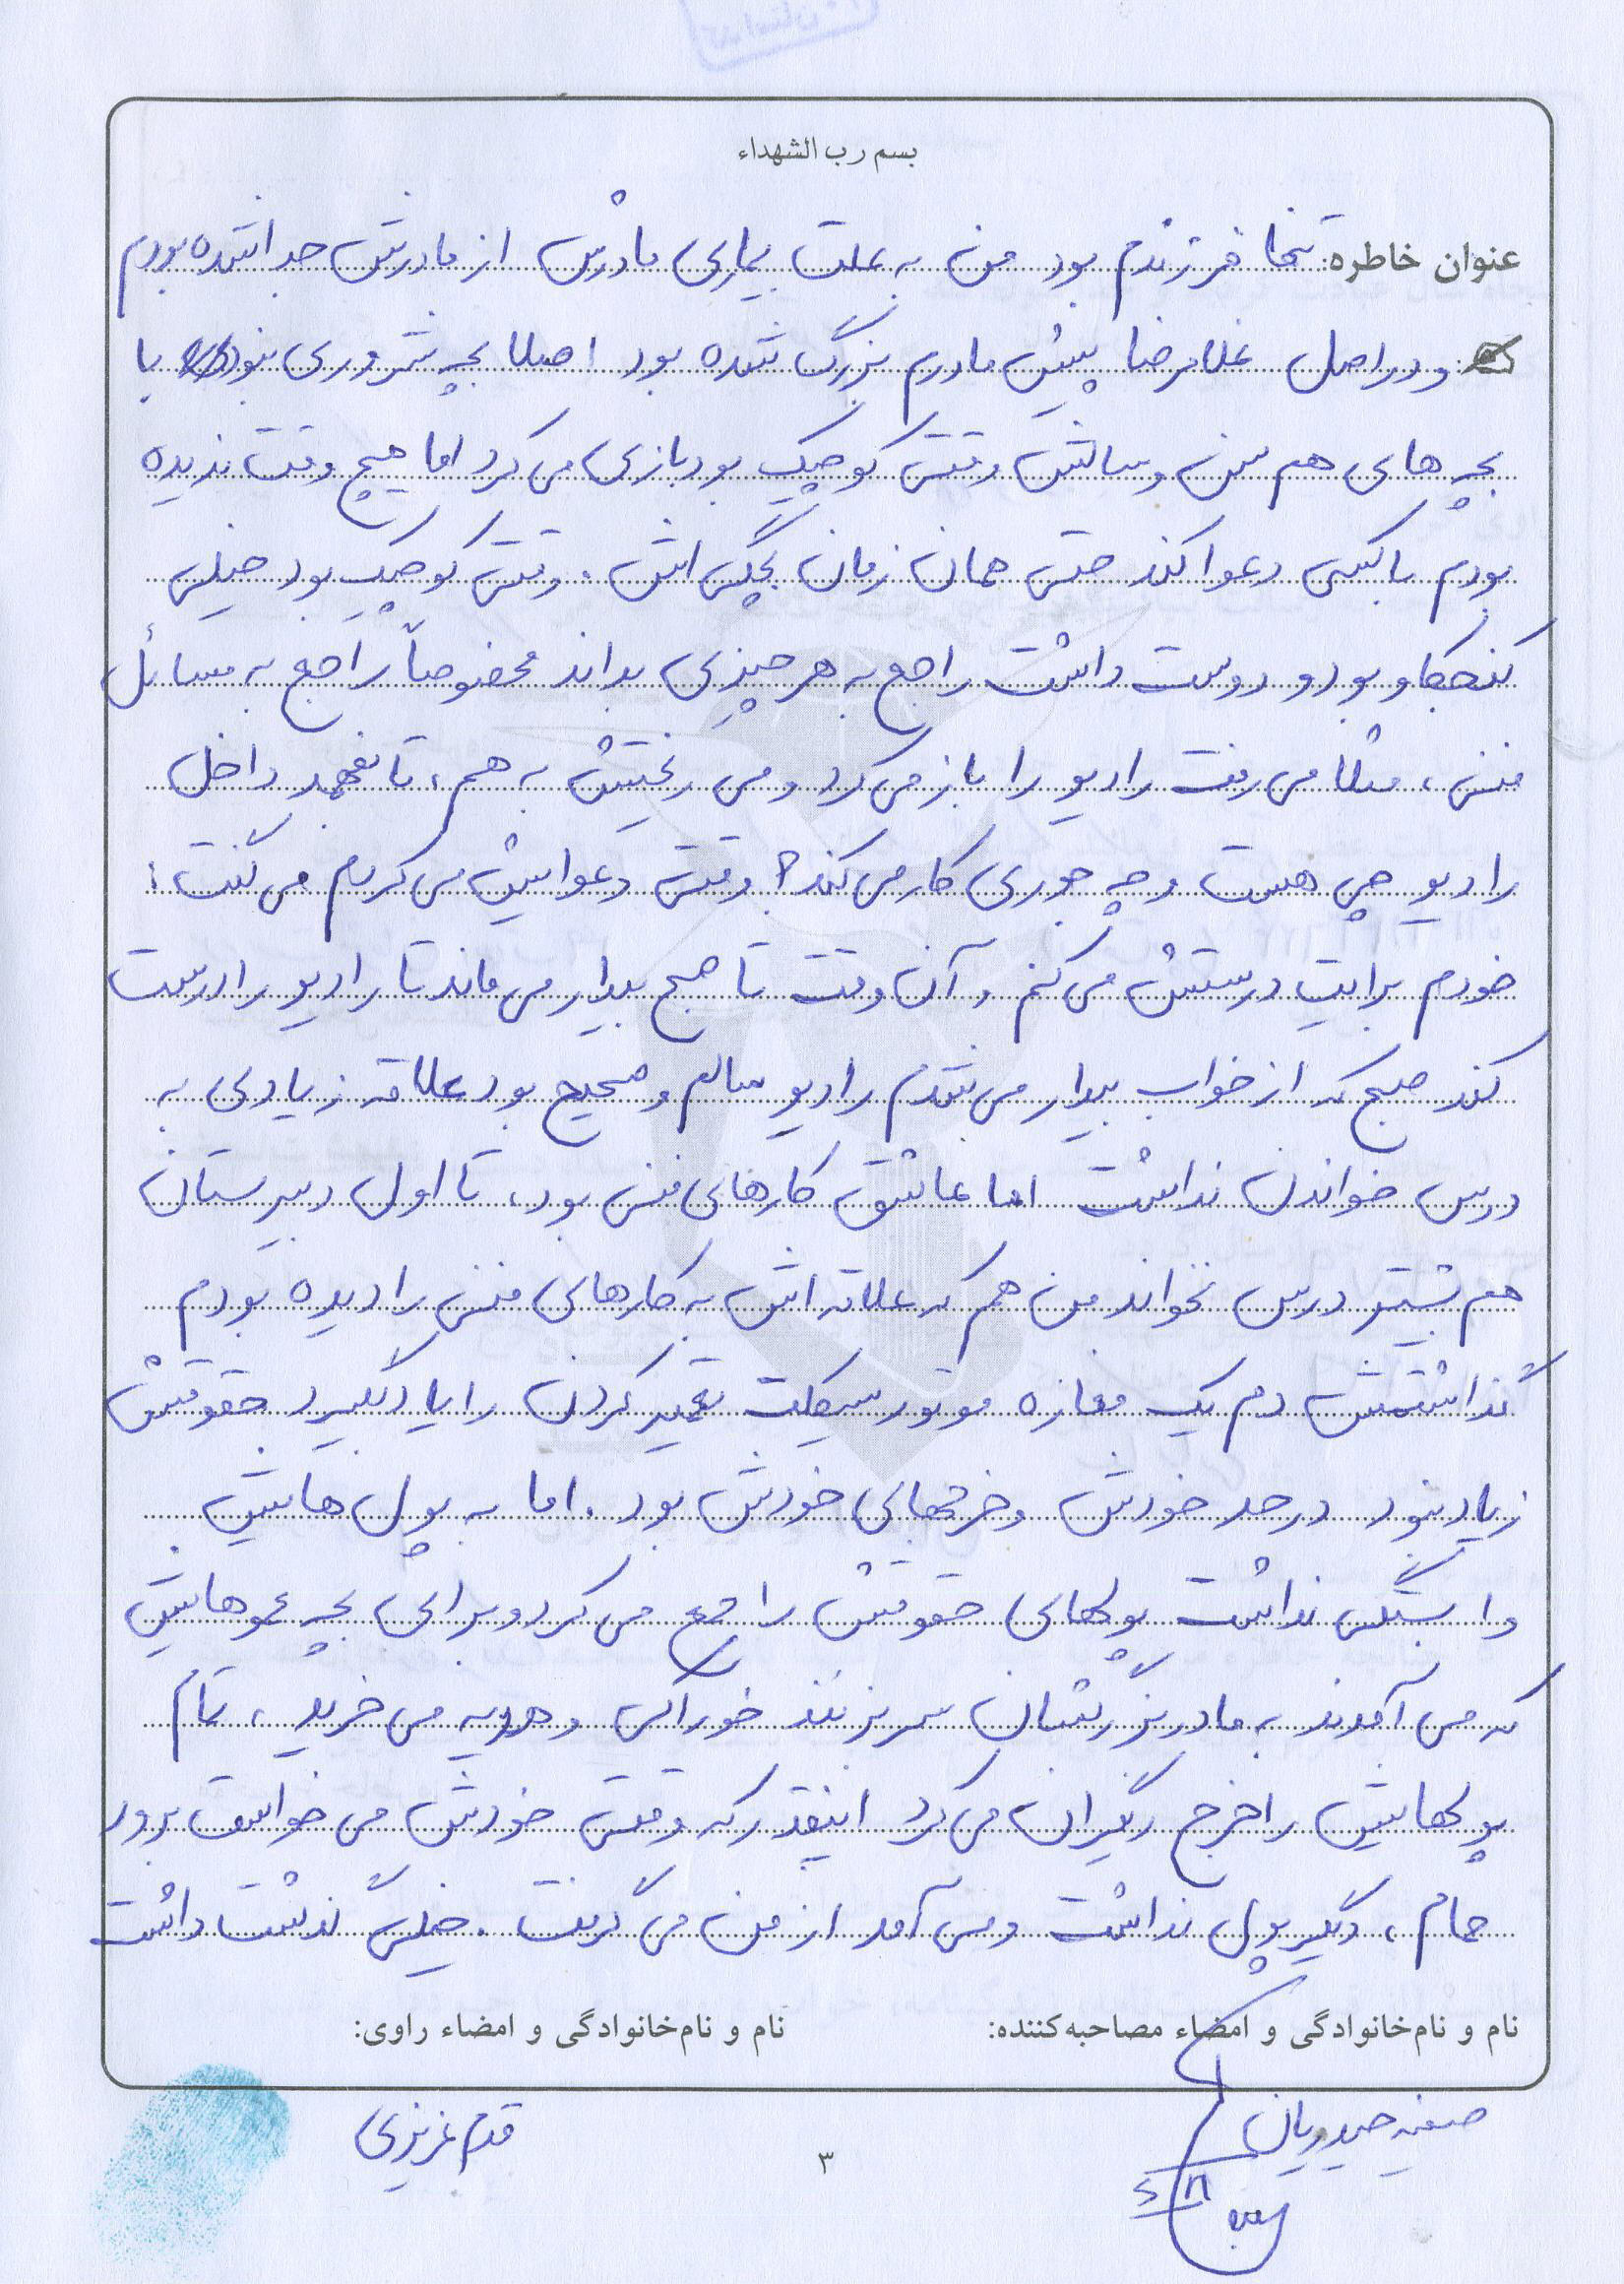 بسم رب الشهداء
عنوان خاطره: تنها فرزندم بود من به علت بیماری مادرش از مادرش جدا شده بودم
و در اصل غلامرضا پیش مادرم بزرگ شده بود اصلا بچه شروری نبود با
بچه های هم سن و سالش وقتی کوچیک بود بازی می کرد اما هیچ وقت ندیده
بودم با کسی دعوا کند حتی همان زمان بچگی اش. وقتی کوچیک بود خیلی
کنجکاو بود و دوست داشت راجع به هر چیزی بداند مخصوصاً راجع به مسائل
فنی، مثلا می رفت رادیو را باز می کرد و می ریختش به هم، تا بفهمد داخل
رادیو چی هست و چه جوری کار می کند؟ وقتی دعوایش می کردم می گفت:
خودم برایت درستش می کنم و آن وقت تا صبح بیدار می ماند تا رادیو را درست
کند صبح که از خواب بیدار می شدم رادیو سالم و صحیح بود علاقه زیادی به
درس خواندن نداشت اما عاشق کارهای فنی بود، تا اول دبیرستان
هم بیشتر درس نخواند من هم که علاقه اش به کارهای فنی را دیده بودم
گذاشتمش دم یک مغازه موتور سیکلت تعمیر کردن را یاد بگیرد حقوقش
زیاد نبود در حد خودش و خرجهای خودش بود. اما به پول هایش
وابستگی نداشت پولهای حقوقش را جمع می کرد و برای بچه عموهایش
که می آمدند به مادربزرگشان سر بزنند خوراکی و هدیه می خرید، تمام
پولهایش را خرج دیگران می کرد اینقدر که وقتی خودش می خواست برود
حمام، دیگر پول نداشت و می آمد از من می گرفت. خیلی گذشت داشت
نام و نام‌خانوادگی و امضاء مصاحبه‌کننده:
نام و نام‌خانوادگی و امضاء راوی:
صفیه حیدریان
قدم عزیزی
۳